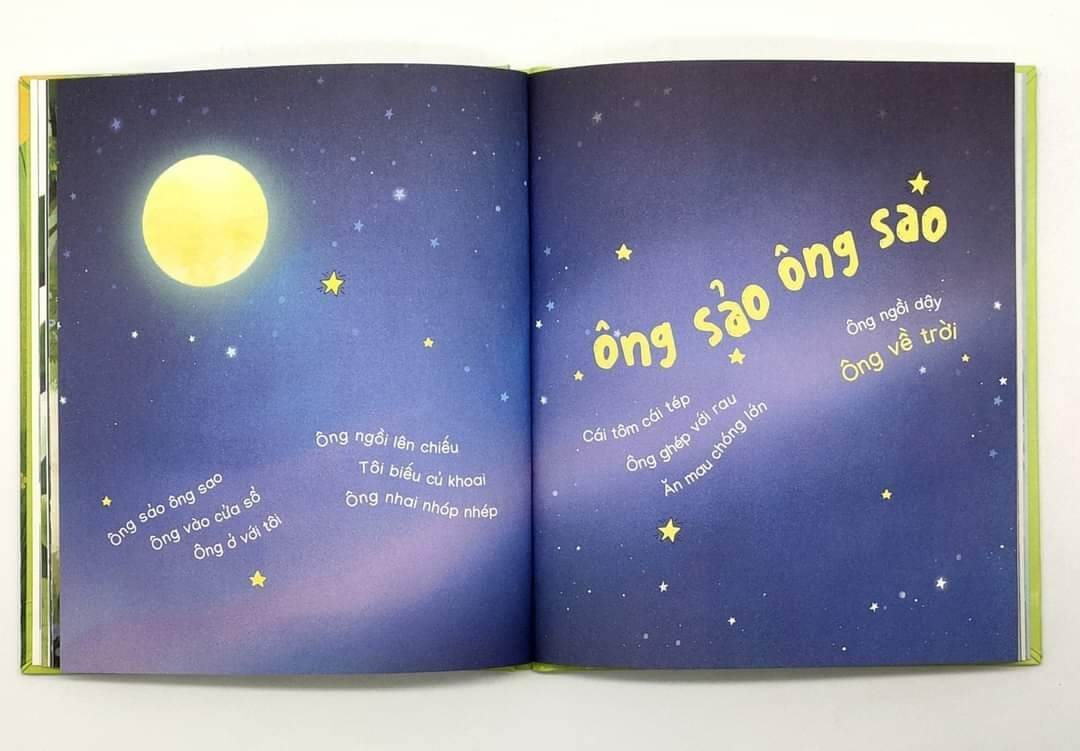 Ông sảo ông sao
Ông vào cửa sổ
Ông ở với tôi
Ông ngồi lên chiếu
Tôi biếu củ khoai
Ông nhai nhóp nhép
ông sảo ông sao
Cái tôm cái tép
Ông ghép với rau
Ăn mau chóng lớn
Ông ngồi dậy
Ông về trời